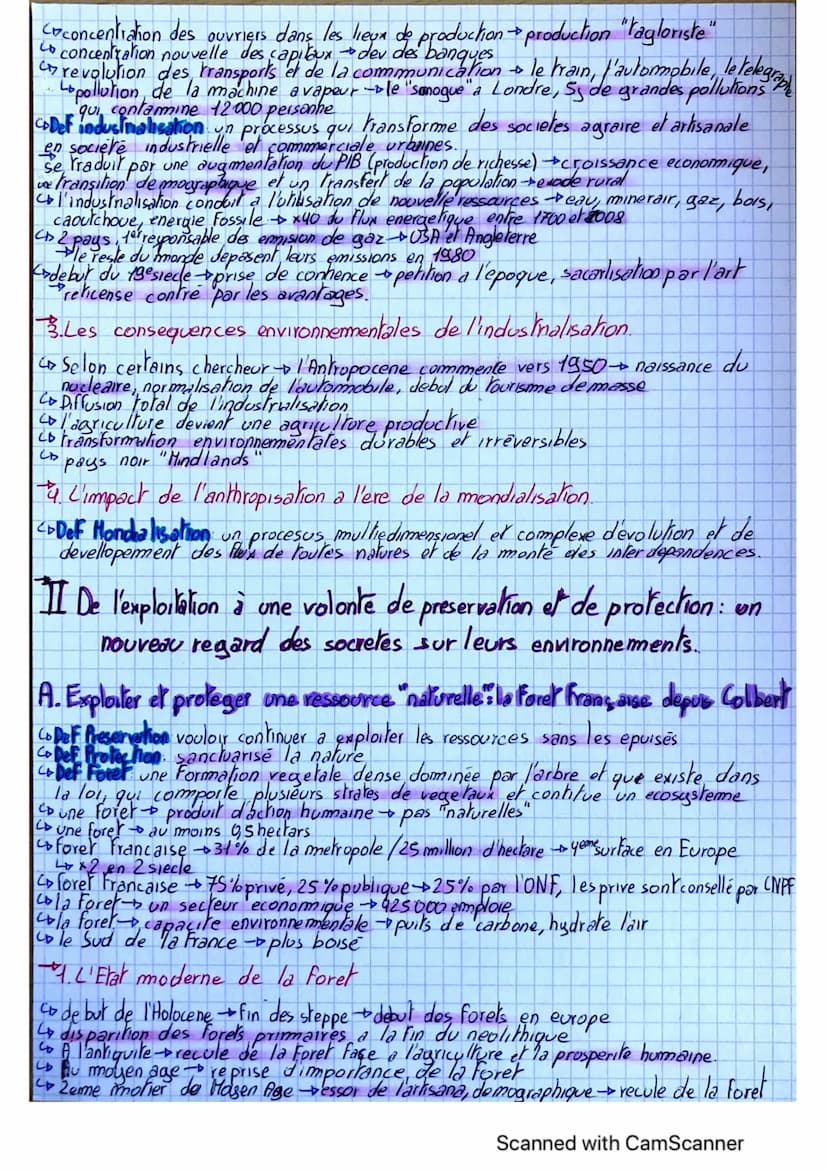 ↳concentration des ouvriers dans les lieux de production → production "tagloriste"
↳ concentration nouvelle des capitaux → dev des banques
↳ revolution des transports et de la commmunication → le train, l'automobile, le telegraphe
↳pollution, de la machine a vapeur → le "smogue" a Londre, 5j de grandes pollutions
qui contamine 12 000 personne
↳Def industrialisation: un processus qui transforme des societes agraire et artisanale
en société industrielle et commerciale urbaines.
→ se traduit par une augmentation du PIB (production de richesse) → croissance economique,
une transition demographique et un transfert de la population → exode rural
↳ l'industrialisation conduit a l'utilisation de nouvelle ressources → eau, minerair, gaz, bois,
caoutchouc, energie fossile → x40 du flux energetique entre 1700 et 2008
↳ 2 pays, 1er responsable des emission de gaz → USA et Angleterre
→ le reste du monde depasent leurs emissions en 1980
↳debut du 19e siecle → prise de conience → petition a l'epoque, sacarlisation par l'art
→ reticense contre par les avantages.
→3.Les consequences environnementales de l'industrialisation.
↳ Selon certains chercheur → l'Antropocene commente vers 1950 → naissance du
nucleaire, normalisation de l'automobile, debut du tourisme de masse
↳ Diffusion total de l'industrialisation
↳ l'agriculture devient une agriculture productive
↳ transformation environnementales durables et irréversibles
↳ pays noir "Hindlands"
→4. L'impact de l'anthropisation a l'ere de la mondialisation.
↳Def Mondialisation: un procesus multiedimensionel et complexe d'evolution et de
devellopement des flux de toutes natures et de la monté des inter dependences.
→II De l'exploitation à une volonte de preservation et de protection: un
nouveau regard des societes sur leurs environnements.
A. Exploiter et proteger une ressource "naturelle": la Foret française depuis Colbert
↳ Def Preservation vouloir continuer a exploiter les ressources sans les epuisés
↳ Def Protection: sanctuarisé la nature
↳ Def Foret: une Formation vegetale dense dominée par l'arbre et que existe dans
la loi, qui comporte plusieurs strates de vegetaux et contitue un ecosysteme
↳ une foret → produit d'action humaine → pas "naturelles"
↳ une foret → au moins 0,5 hectars
↳ foret francaise → 31% de la metropole /25 million d'hectare → 4eme surface en Europe
↳ x2 en 2 siecle
↳ foret Francaise → 75% privé, 25% publique → 25% par l'ONF, les prive sont consellé par CNPF
↳ la Foret → un secteur economique → 425 000 emploie
↳ la foret → capacite environnementale → puits de carbone, hydrate l'air
↳ le Sud de la France → plus boisé
→1. L'Etat moderne de la foret
↳ debut de l'Holocene → fin des steppe → début des forets en europe
↳ disparition des forets primaires a la fin du neolithique
↳ A l'antiquite → recule de la foret face a l'agriculture et la prosperite humaine.
↳ Au moyen age → reprise d'importance, de la foret
↳ 2eme moitier du Moyen Age → essor de l'artisana, demographique → recule de la foret
Scanned with CamScanner